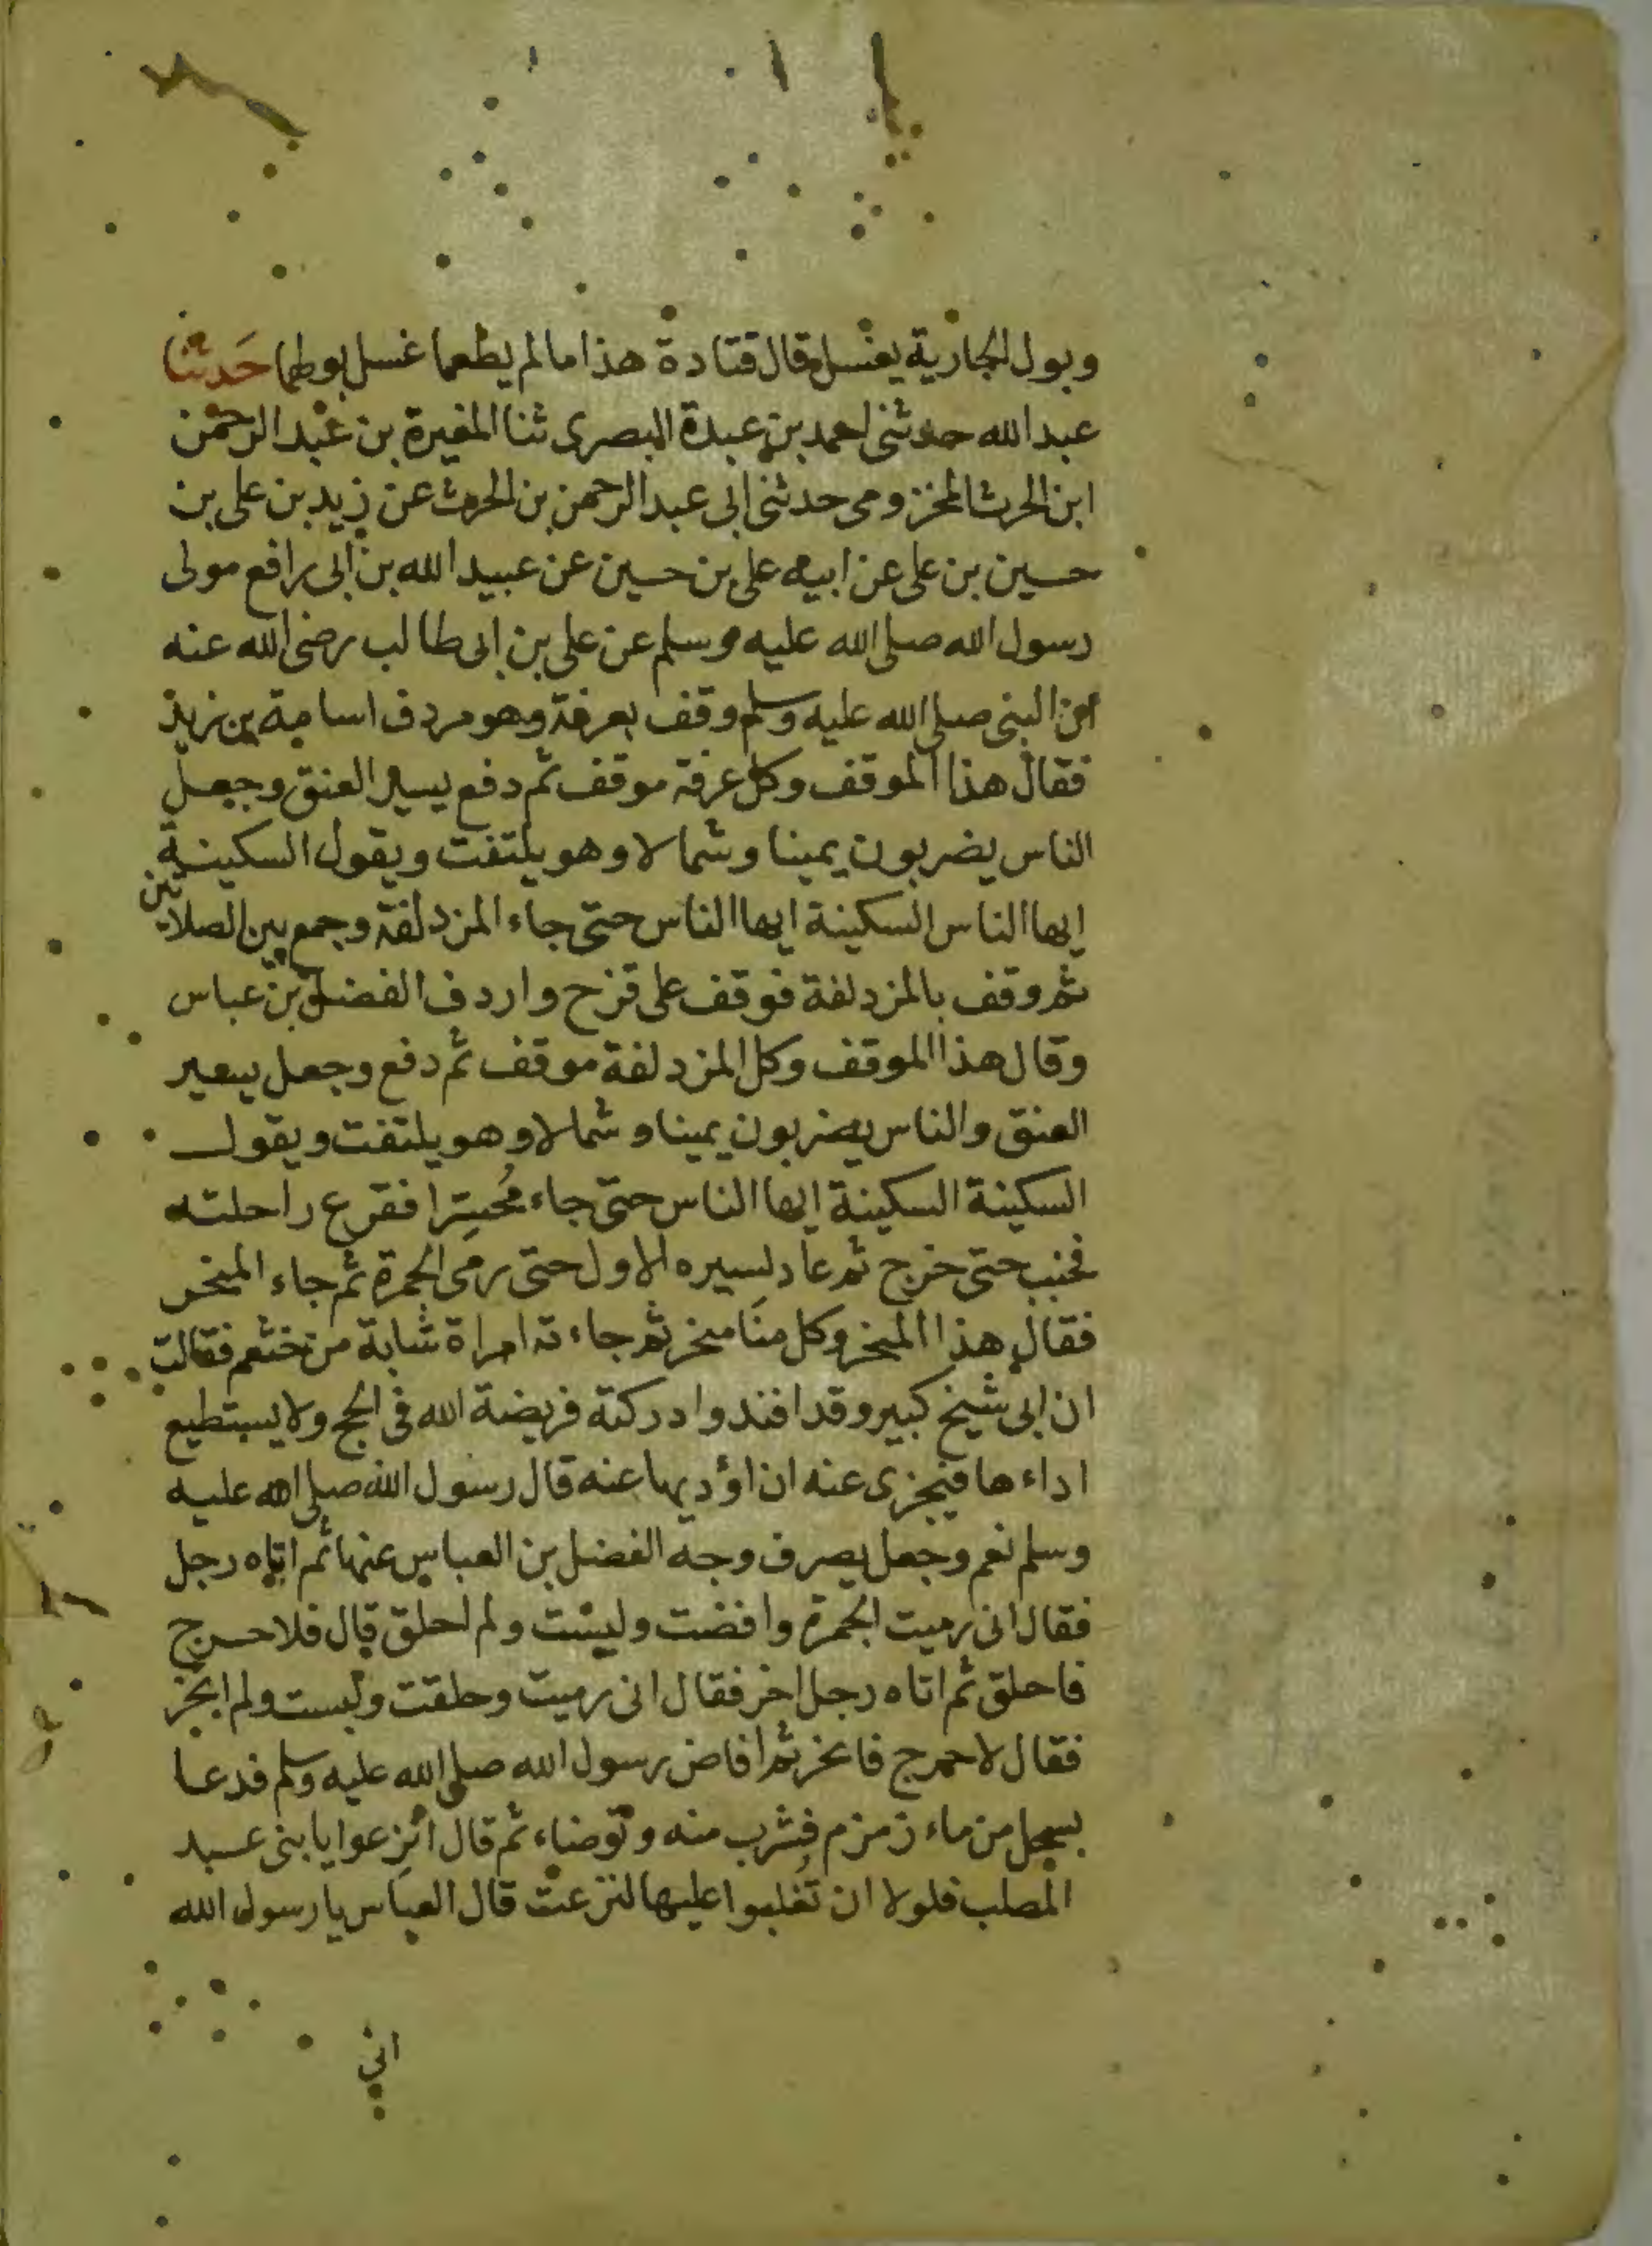 وبول الجارية يغسل قال قتادة هذا ما لم يطعما غسل بولهما حَدثنا
عبد الله حدثنى احمد بن عبدة البصرى ثنا المغيرة بن عبد الرحمن
ابن الحرث المخزومى حدثنى ابى عبد الرحمن بن الحرث عن زيد بن على بن
حسين بن على عن ابيه على بن حسين عن عبيد الله بن ابى رافع مولى
رسول الله صلى الله عليه وسلم عن على بن ابى طالب رضى الله عنه
ان النبى صلى الله عليه وسلم وقف بعرفة وهو مردف اسامة بن زيد
فقال هذا الموقف وكل عرفة موقف ثم دفع يسير العنق وجعل
الناس يضربون يمينا وشمالا وهو يلتفت ويقول السكينة
ايها الناس السكينة ايها الناس حتى جاء المزدلفة وجمع بين الصلاتين
ثم وقف بالمزدلفة فوقف على قزح واردف الفضل بن عباس
وقال هذا الموقف وكل المزدلفة موقف ثم دفع وجعل يسير
العنق والناس يضربون يمينا وشمالا وهو يلتفت ويقول
السكينة السكينة ايها الناس حتى جاء مُحسِّرا فقرع راحلته
فخبب حتى خرج ثم عاد لسيره الاول حتى رمى الجمرة ثم جاء المنحر
فقال هذا المنحر وكل منَا منحر ثم جاءته امراة شابة من خثعم فقالت
ان ابى شيخ كبير وقد افند وادركته فريضة الله فى الحج ولا يستطيع
اداءها فيجزى عنه ان اؤديها عنه قال رسول الله صلى الله عليه
وسلم نعم وجعل يصرف وجه الفضل بن العباس عنها ثم اتاه رجل
فقال انى رميت الجمرة وافضت ولبست ولم احلق قال فلا حرج
فاحلق ثم اتاه رجل اخر فقال انى رميت وحلقت ولبست ولم انحر
فقال لا حرج فانحر ثم افاض رسول الله صلى الله عليه وسلم فدعا
بسجل من ماء زمزم فشرب منه وتوضاء ثم قال انزِعوا يا بنى عبد
المطلب فلولا ان تُغلبوا عليها لنزعت قال العباس يا رسول الله
انى